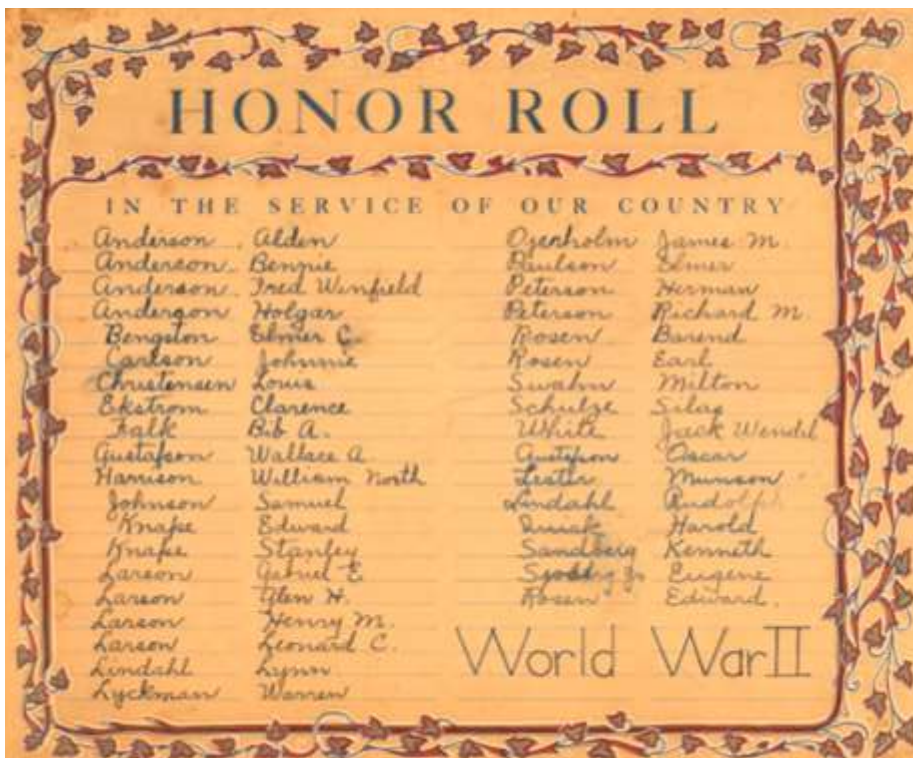 HONOR ROLL
IN THE SERVICE OF OUR COUNTRY
Anderson Alden
Anderson Bennie
Anderson Fred Winfield
Anderson Holgar
Bengston Elmer C.
Carlson Johnnie
Christensen Louis
Ekstrom Clarence
Falk Bib A.
Gustafson Wallace A.
Harrison William North
Johnson Samuel
Knape Edward
Knape Stanley
Larson Gabriel E.
Larson Glen H.
Larson Henry M.
Larson Leonard C.
Lindahl Lynn
Lyckman Warren
Ojenholm James M.
Paulson Elmer
Peterson Herman
Peterson Richard M.
Rosen Barend
Rosen Earl
Swahn Milton
Schulze Silas
White Jack Wendel
Gustafson Oscar
Lester Munson
Lindahl Rudolph
Harold
Sandberg Kenneth
Sjoberg Jr. Eugene
Rosen Edward.
World War II